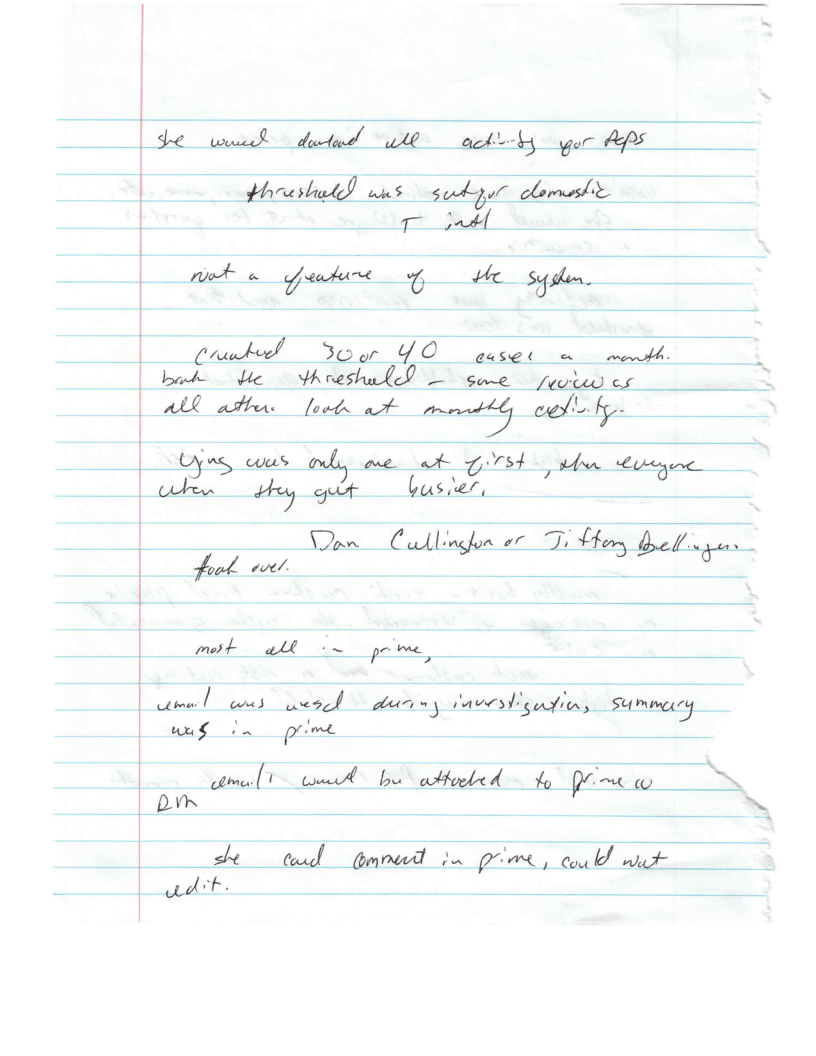 she would download all activity for
threshold was set for domestic
T intl
not a feature of the system.
Created 30 or 40 cases a month.
the threshold – same review as
all other. look at monthly activity.
Ying was only one at first, then everyone
when they got busier.
Dan Cullington or Tiffany
took over.
most all in prime,
email was used during investigation, summary
was in prime
emails would be attached to prime w
RM
she could comment in prime, could not
edit.